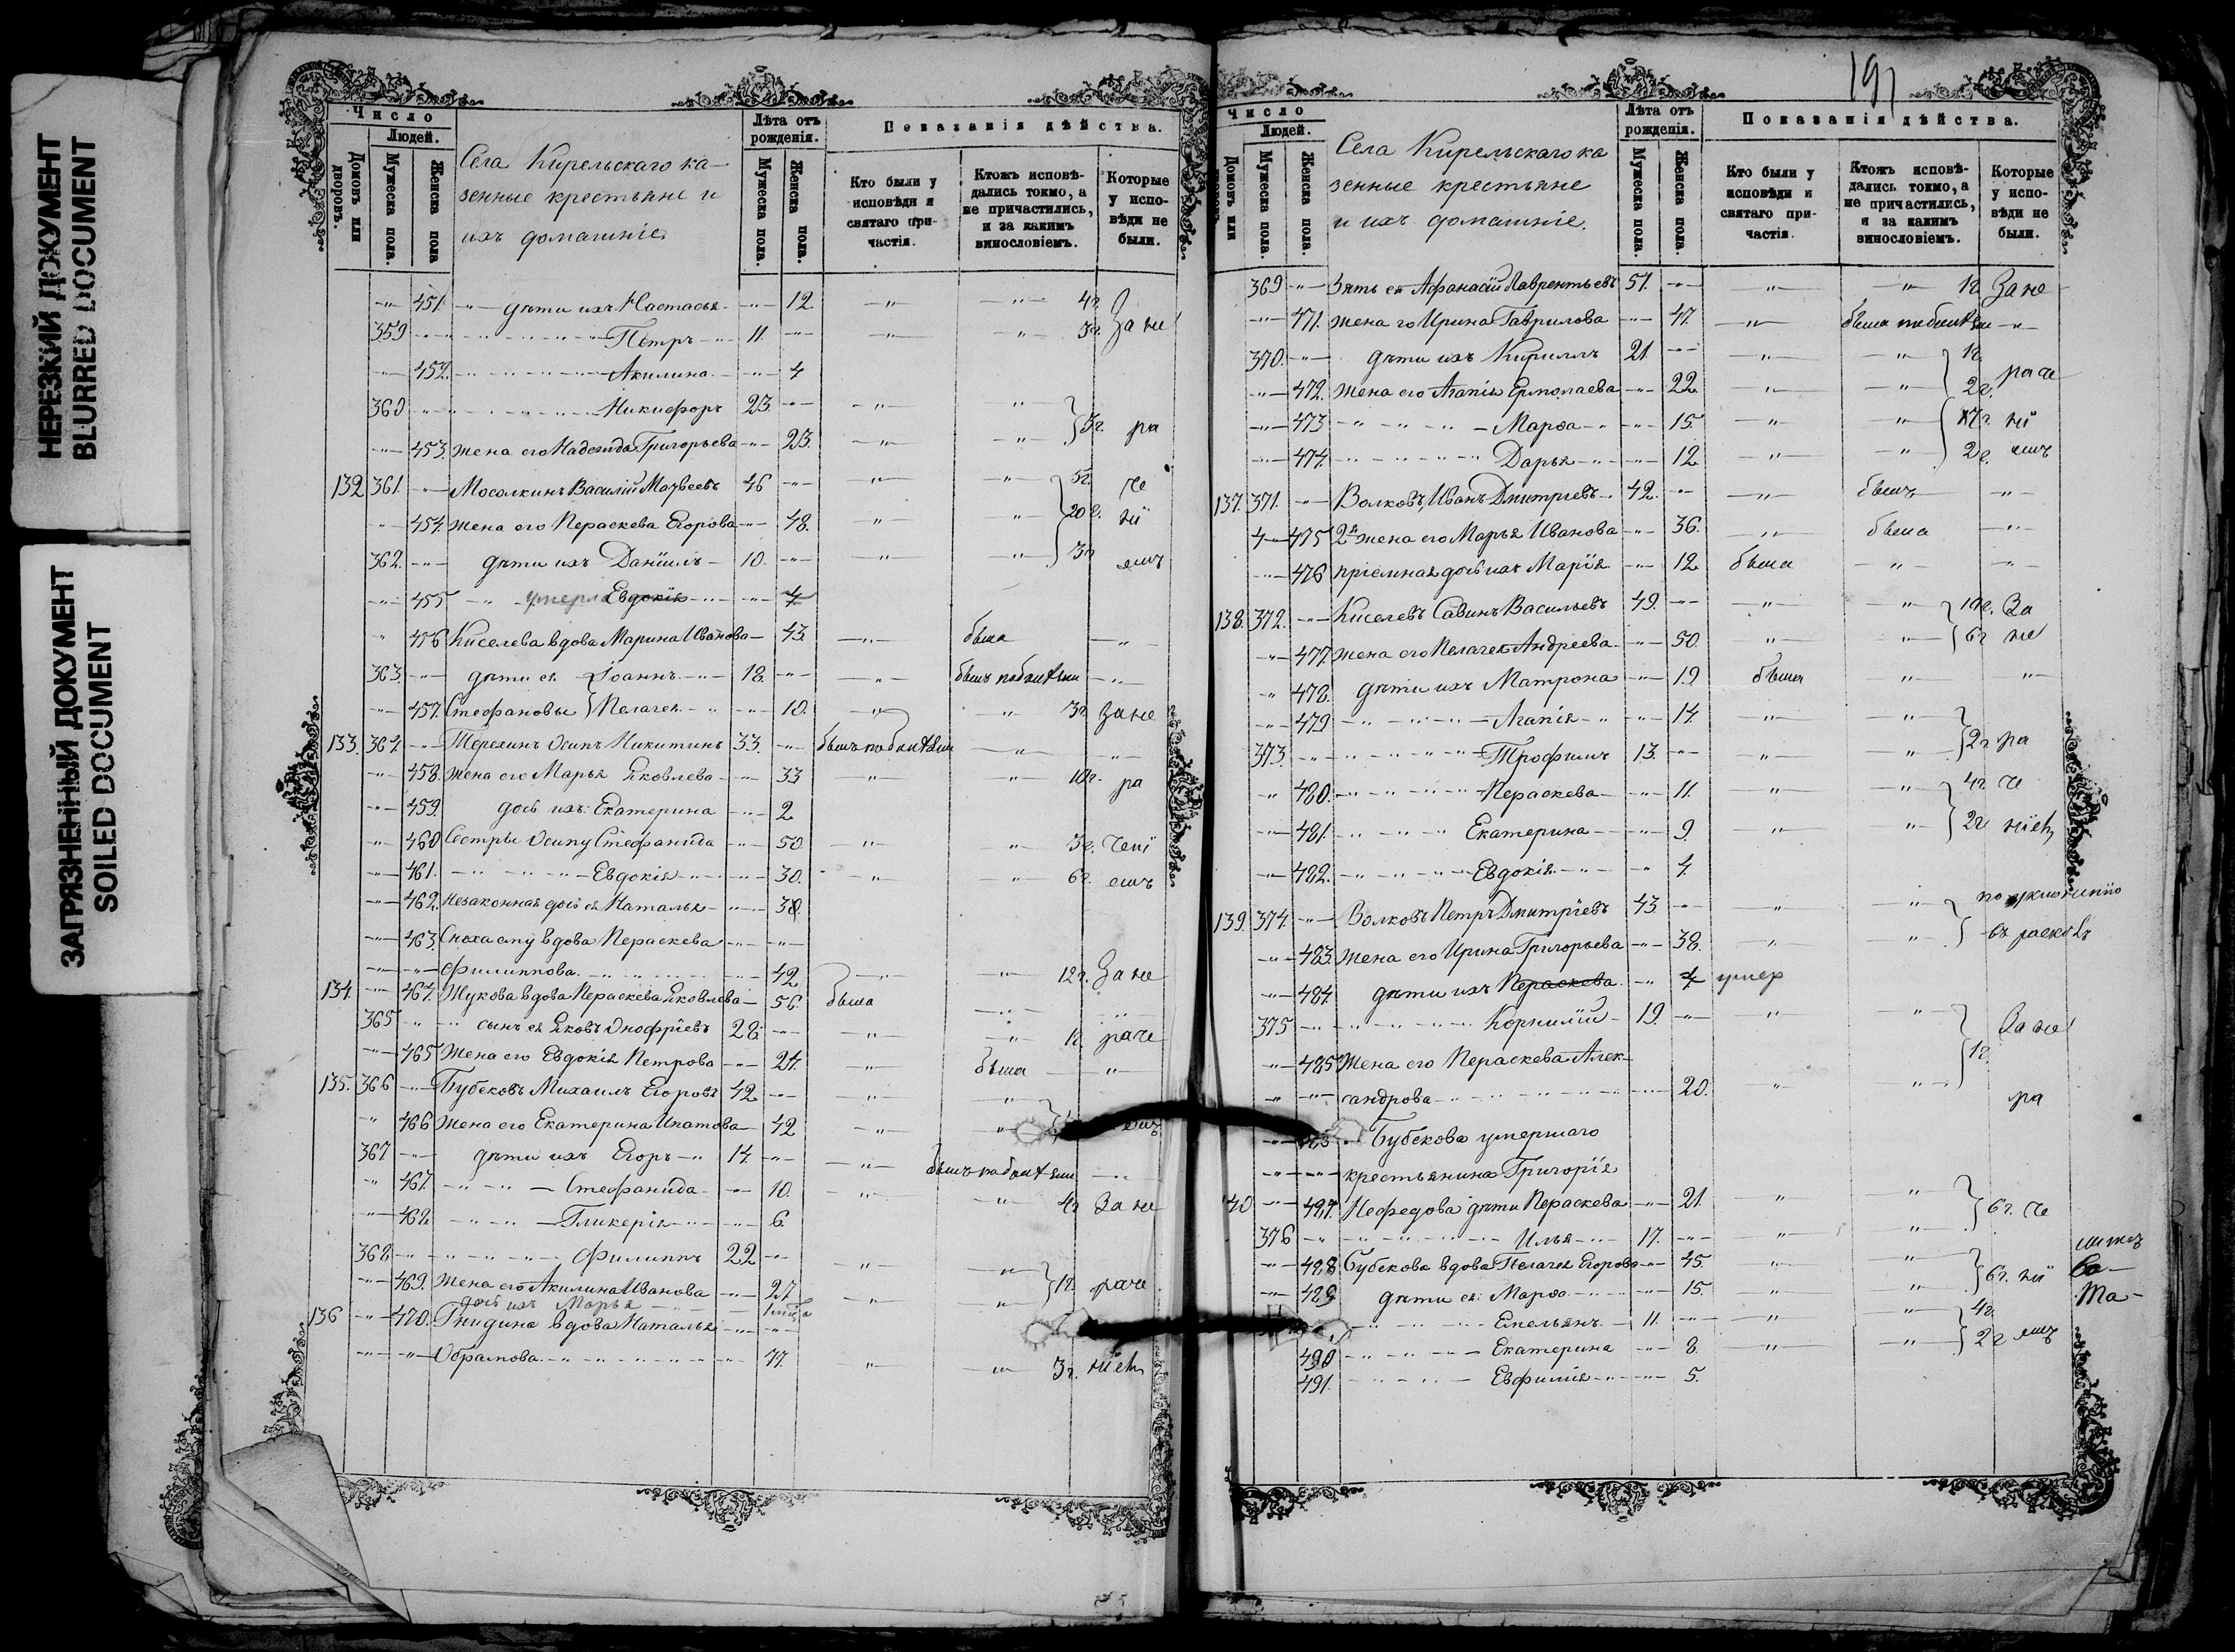 НЕРЕЗКИЙ ДОКУМЕНТ
BLURRED DOCUMENT
ЗАГРЯЗНЕННЫЙ ДОКУМЕНТ
SOILED DOCUMENT
Число
Людей.
Домовъ или дворовъ.
Мужеска пола.
Женска пола
Села Кирельскаго ка-
зенные крестьяне и
ихъ домашніе
Лѣта отъ рожденія.
Мужеска пола.
Женска пола.
Показанія дѣйства.
Кто были у исповѣди и святаго при-частія.
Ктожъ исповѣ-дались токмо, а не причастились, и за какимъ винословіемъ.
Которые у испо-вѣди не были.
451. дѣти ихъ Настасья 12. 4г. За не
359 Петръ 11. 3г.
452. Акилина 4
360 Никифоръ 23. 3г. ра
453. жена его Надежда Григорьева 23.
132 361. Мосолкинъ Василій Матвеевъ 46 5г. че
454. жена его Пераскева Егорова 48. 20г. ні
362. дѣти ихъ Даніилъ 10. 3г. емъ
455 умерла Евдокія 4
456 Киселева вдова Марина Иванова 43 была
363. дѣти ея Іоаннъ 18.
457. Стефановы Пелагея 10. 3г. За не
133. 364. Терехинъ Осипъ Никитинъ 33.
458. жена его Марья Яковлева 33 10г. ра
459. дочь ихъ Екатерина 2
460 Сестры Осипу Стефанида 50. 3г. чені
461. Евдокія 30. 6г. емъ
462. незаконная дочь ея Наталья
463. Сноха ему вдова Пераскева
Филиппова. 42 12г. За не
134. 464. Жукова вдова Пераскева Яковлева 56. была
365 сынъ ея Яковъ Онофріевъ 28. 1г. раче
465 жена его Евдокія Петрова 24. была
135. 366 Бубековъ Михаилъ Егоровъ 42
466 жена его Екатерина Ипатова 42 емъ
367 дѣти ихъ Егоръ 14.
467. Стефанида 10. 4г. За не
468. Гликерія 6.
368 Филиппъ 22
469. жена его Акилина Иванова 27 1г. раче
дочь ихъ Марья
136 470. Гнидина вдова Наталья
Обрамова. 77. 3г. ніем
191
Число
Людей.
Мужеска пола.
Женска пола.
Села Кирельскаго ка
зенные крестьяне
и ихъ домашніе.
Лѣта отъ рожденія.
Мужеска пола.
Женска пола.
Показанія дѣйства.
Кто были у исповѣди и святаго при-частія.
Ктожъ исповѣ-дались токмо, а не причастились, и за какимъ винословіемъ.
Которые у испо-вѣди не были.
369 Зять ея Афанасій Лаврентьевъ 51. 1г. За не
471. жена го Ирина Гаврилова 47.
370. дѣти ихъ Кириллъ 21. 1г. раче
472. жена его Агапія Ермолаева 22. 2г.
473 Марѳа 15. ні
474. Дарья 12 2г. емъ
137. 371. Волковъ Иванъ Дмитріевъ 42. былъ
475 2я жена его Марья Иванова 36. была
476 пріемная дочь ихъ Марія 12 была
138. 372. Киселевъ Савинъ Васильевъ 49. За
477. жена его Пелагея Андреева 50. 6г. не
478. дѣти ихъ Матрона 19 была
479 Агапія 14.
373. Трофимъ 13. 2г. ра
480. Пераскева 11. 4г. че
481. Екатерина 9. 2г. ніем
482. Евдокія 4.
139. 374. Волковъ Петръ Дмитріевъ 43.
483. жена его Ирина Григорьева 38.
484. дѣти ихъ Пераскева 4 умер
375 Корнилій 19. За не
485 жена его Пераскева Алек-
сандрова 20. 1г. ра
Бубекова умершаго
крестьянина Григорія
487. Нефедова дѣти Пераскева 21. 6г. че
376 Илья 17.
488 Бубекова вдова Пелагея Егорова 45. 6г. ні
489 дѣти ея: Марѳа 15.
Емельянъ 11. 4г.
490 Екатерина 8. 2г емъ
491. Евфимія 5.